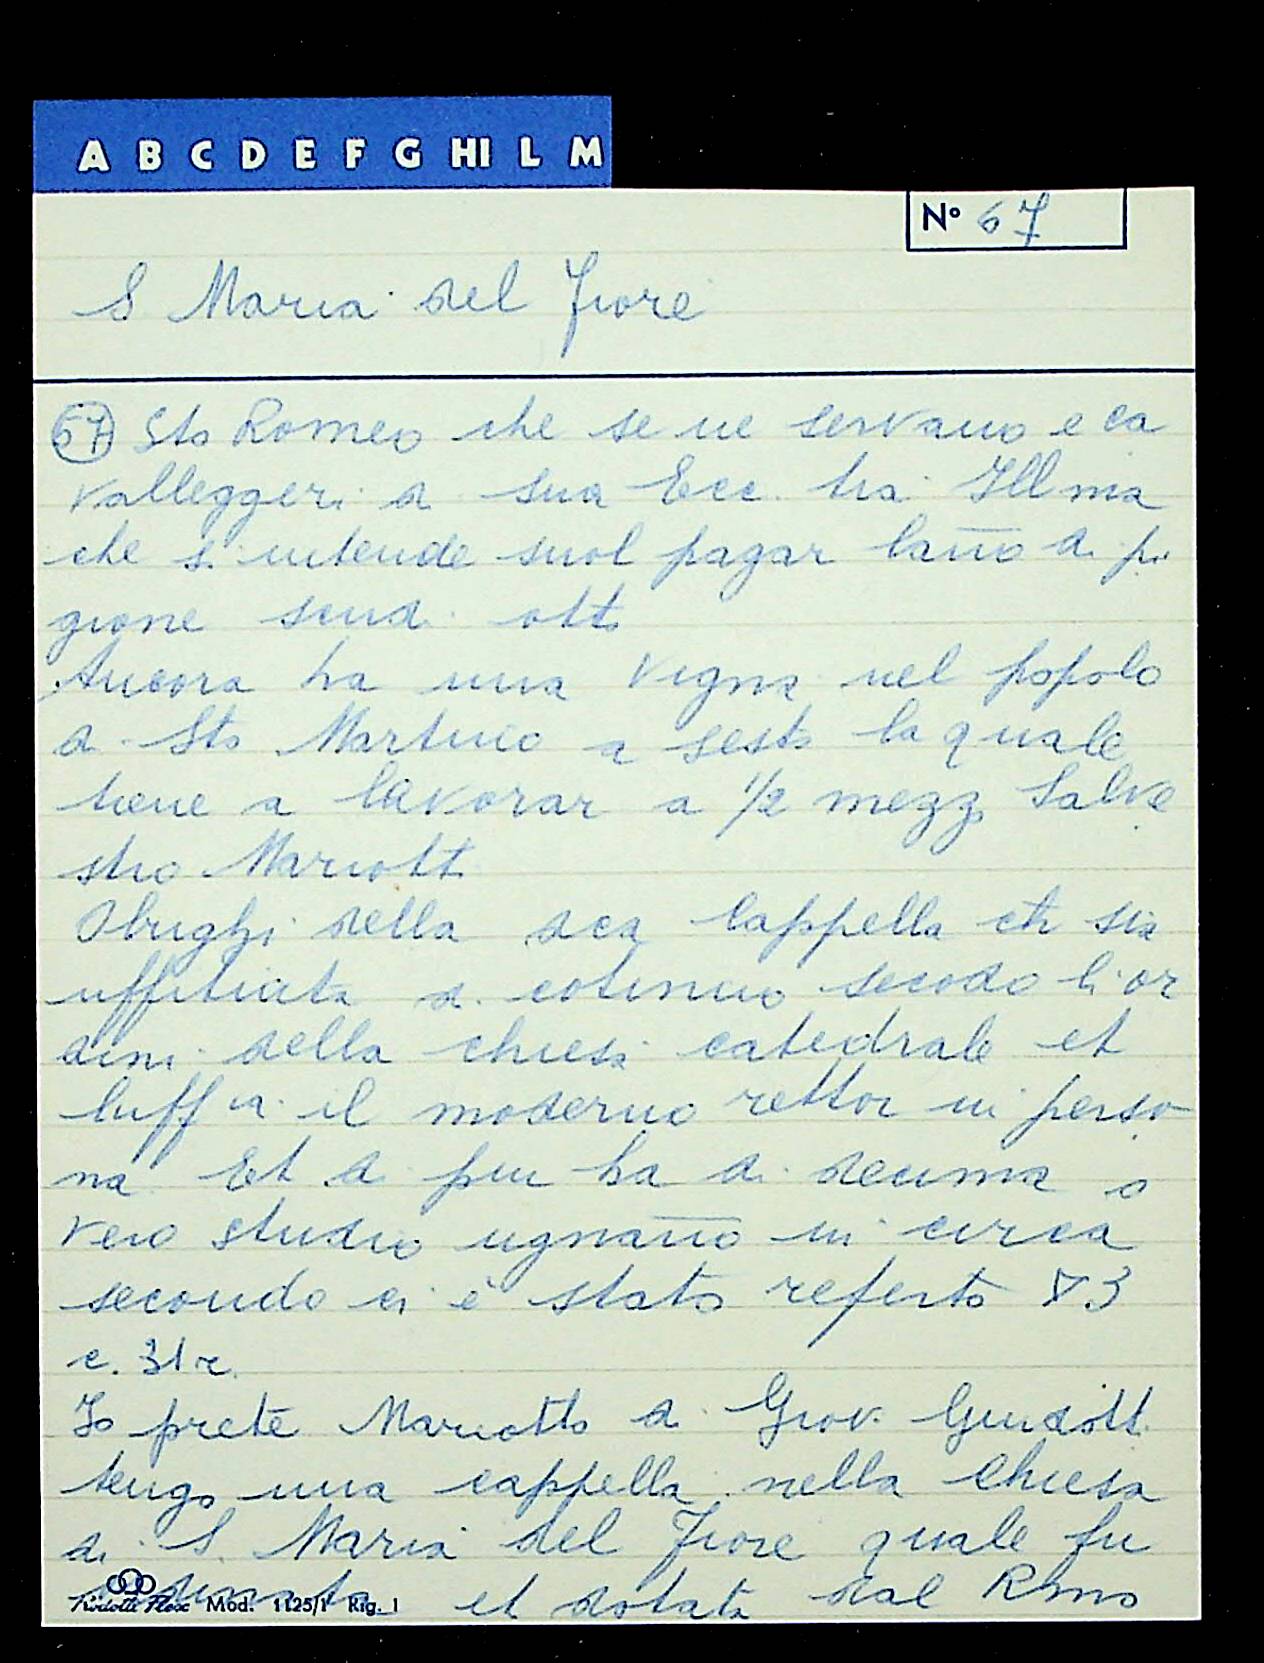 A B C D E F G HI L M
N° 67
S Maria del Fiore
67 Sto Romeo che se ne servano e ca
valleggeri di sua Ecc. tia Illma
che si intende suol pagar lano di pi
gione scudi otto
Ancora ha una vigna nel popolo
di Sto Martino a sesto la quale
tiene a lavorar a 1/2 mezzo Salve
stro Mariotti
Oblighi della dca Cappella che sia
uffitiata di cotinuo secodo li or
dini della chiesa catedrale et
luff il moderno rettor in perso
na Et di piu ha di decima o
vero studio ognano in circa
secondo ci è stato referto ▽3
c. 31r.
Io prete Mariotto di Giov. Guidotti
tengo una cappella nella Chiesa
di S. Maria del Fiore quale fu
et dotata dal Rmo
Mod. 1125/1 Rig. 1